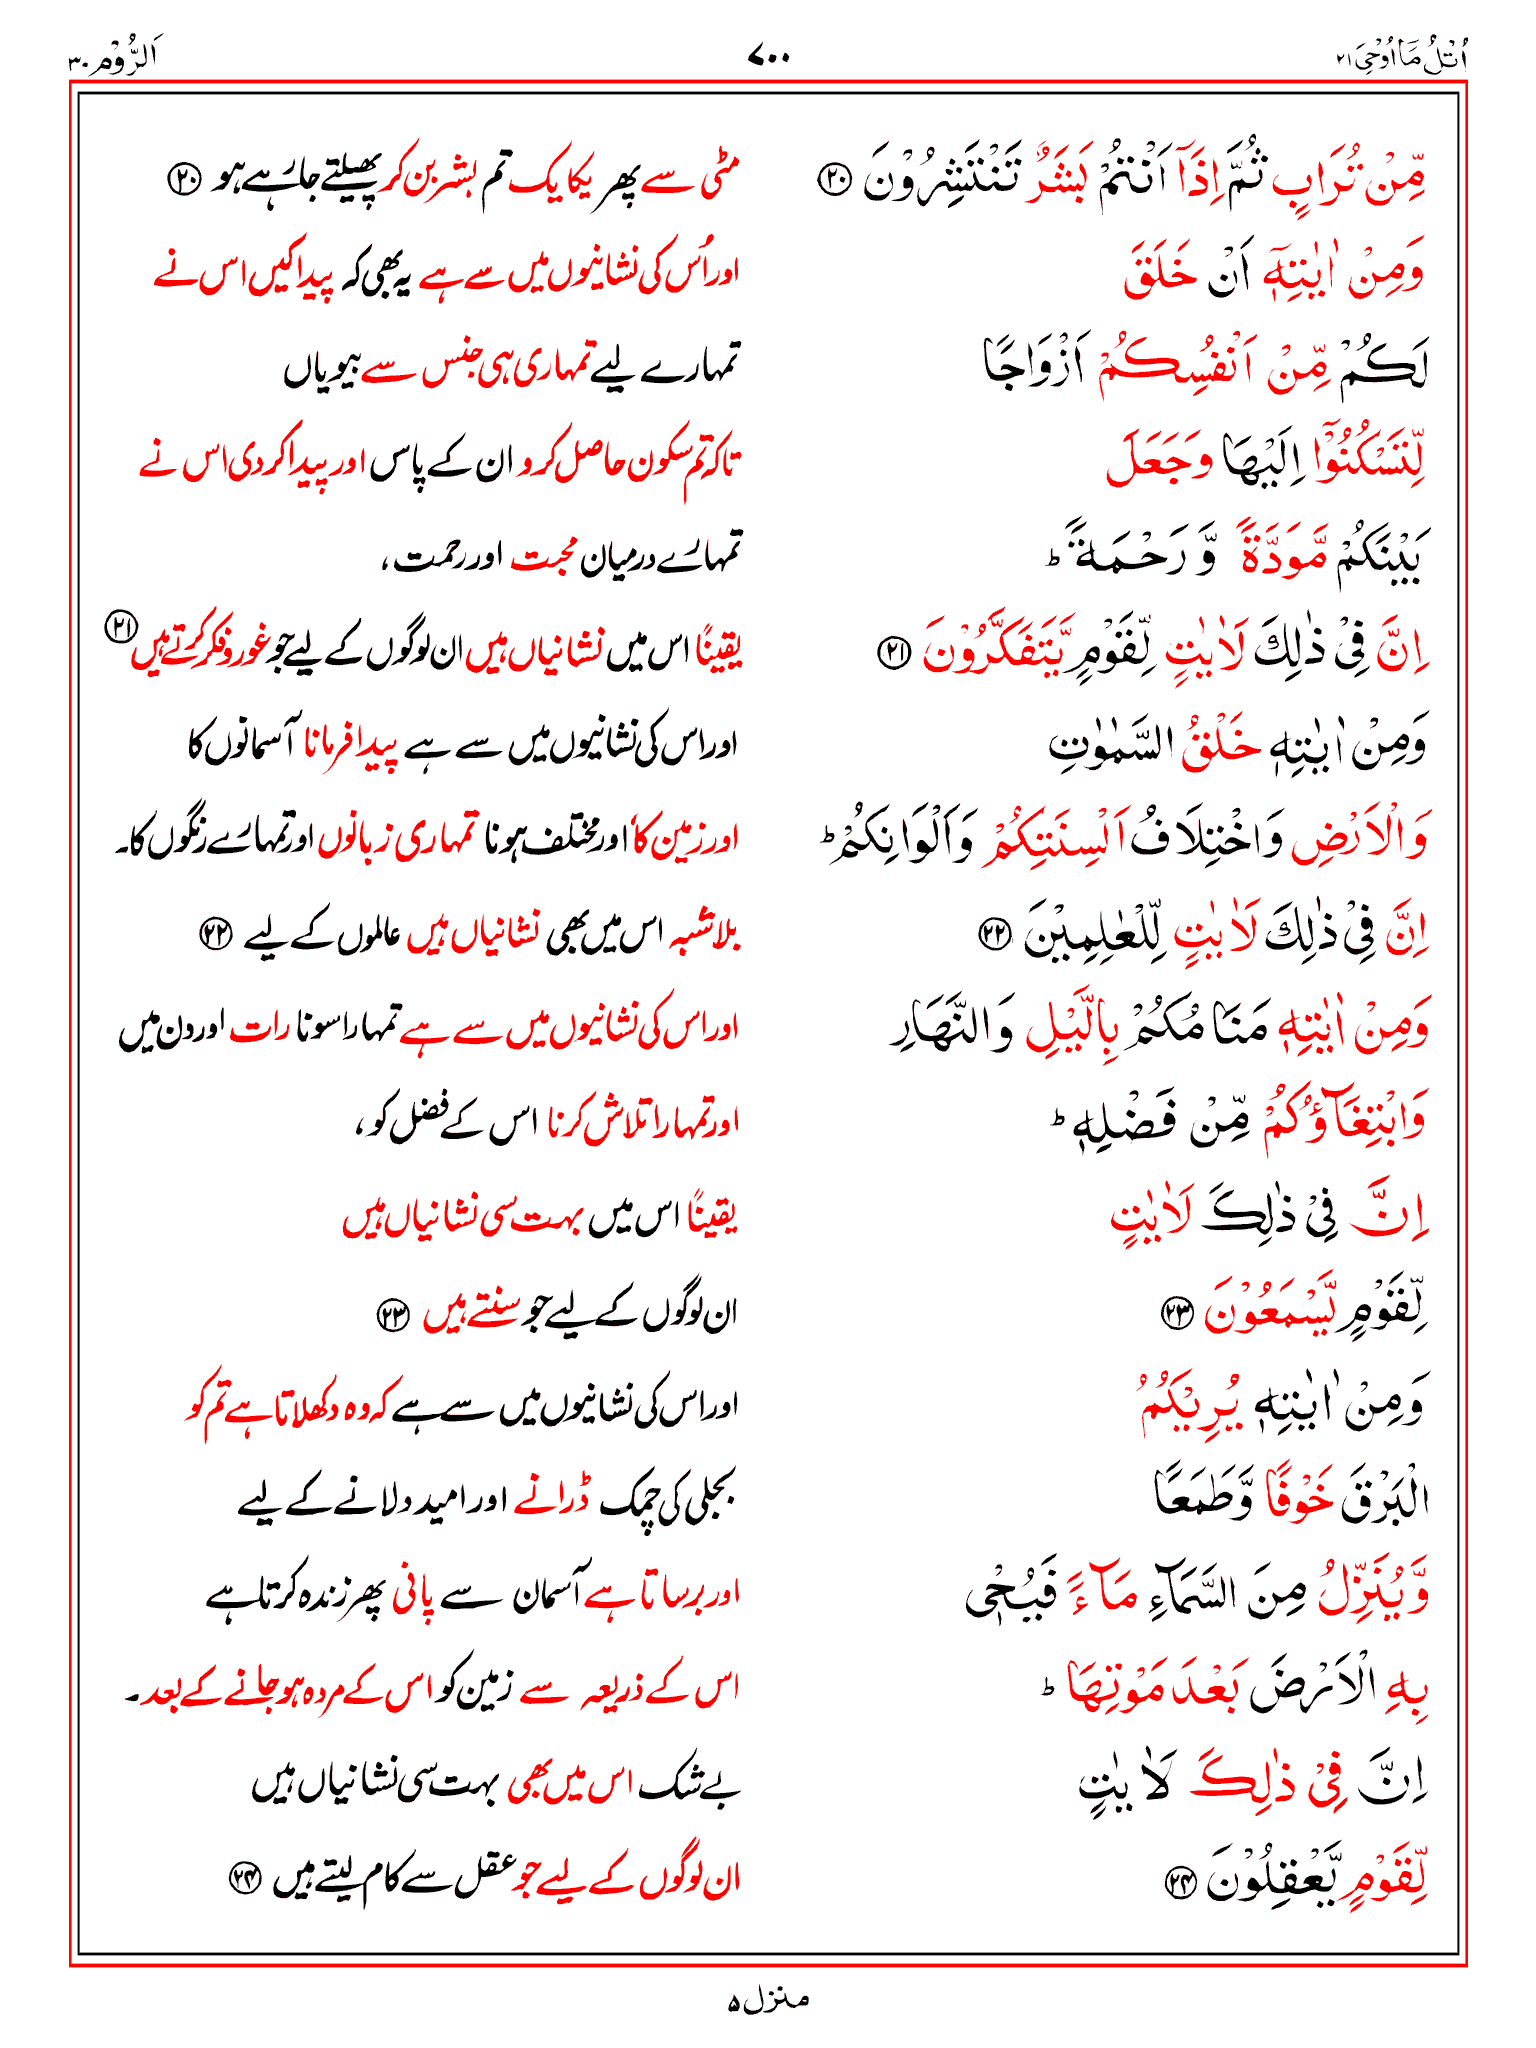 اُتْلُ مَاۤ اُوْحِیَ ۲۱ ۷۰۰ اَلرُّوْم ۳۰
مِّنْ تُرَابٍ ثُمَّ اِذَاۤ اَنْتُمْ بَشَرٌ تَنْتَشِرُوْنَ ۲۰ مٹی سے پھر یکایک تم بشر بن کر پھیلتے جا رہے ہو ۲۰
وَمِنْ اٰیٰتِهٖۤ اَنْ خَلَقَ اور اُس کی نشانیوں میں سے ہے یہ بھی کہ پیدا کیں اس نے
لَكُمْ مِّنْ اَنْفُسِكُمْ اَزْوَاجًا تمہارے لیے تمہاری ہی جنس سے بیویاں
لِّتَسْكُنُوْۤا اِلَیْهَا وَجَعَلَ تاکہ تم سکون حاصل کرو ان کے پاس اور پیدا کر دی اس نے
بَیْنَكُمْ مَّوَدَّةً وَّرَحْمَةً ؕ تمہارے درمیان محبت اور رحمت،
اِنَّ فِیْ ذٰلِكَ لَاٰیٰتٍ لِّقَوْمٍ یَّتَفَكَّرُوْنَ ۲۱ یقیناً اس میں نشانیاں ہیں ان لوگوں کے لیے جو غور و فکر کرتے ہیں ۲۱
وَمِنْ اٰیٰتِهٖ خَلْقُ السَّمٰوٰتِ اور اس کی نشانیوں میں سے ہے پیدا فرمانا آسمانوں کا
وَالْاَرْضِ وَاخْتِلَافُ اَلْسِنَتِكُمْ وَاَلْوَانِكُمْ ؕ اور زمین کا' اور مختلف ہونا تمہاری زبانوں اور تمہارے رنگوں کا۔
اِنَّ فِیْ ذٰلِكَ لَاٰیٰتٍ لِّلْعٰلِمِیْنَ ۲۲ بلا شبہ اس میں بھی نشانیاں ہیں عالموں کے لیے ۲۲
وَمِنْ اٰیٰتِهٖ مَنَامُكُمْ بِالَّیْلِ وَالنَّهَارِ اور اس کی نشانیوں میں سے ہے تمہارا سونا رات اور دن میں
وَابْتِغَآؤُكُمْ مِّنْ فَضْلِهٖ ؕ اور تمہارا تلاش کرنا اس کے فضل کو،
اِنَّ فِیْ ذٰلِكَ لَاٰیٰتٍ یقیناً اس میں بہت سی نشانیاں ہیں
لِّقَوْمٍ یَّسْمَعُوْنَ ۲۳ ان لوگوں کے لیے جو سنتے ہیں ۲۳
وَمِنْ اٰیٰتِهٖ یُرِیْكُمُ اور اس کی نشانیوں میں سے ہے کہ وہ دکھلاتا ہے تم کو
الْبَرْقَ خَوْفًا وَّطَمَعًا بجلی کی چمک ڈرانے اور امید دلانے کے لیے
وَّیُنَزِّلُ مِنَ السَّمَآءِ مَآءً فَیُحْیٖ اور برساتا ہے آسمان سے پانی پھر زندہ کرتا ہے
بِهِ الْاَرْضَ بَعْدَ مَوْتِهَا ؕ اس کے ذریعہ سے زمین کو اس کے مردہ ہو جانے کے بعد۔
اِنَّ فِیْ ذٰلِكَ لَاٰیٰتٍ بے شک اس میں بھی بہت سی نشانیاں ہیں
لِّقَوْمٍ یَّعْقِلُوْنَ ۲۴ ان لوگوں کے لیے جو عقل سے کام لیتے ہیں ۲۴
منزل ۵